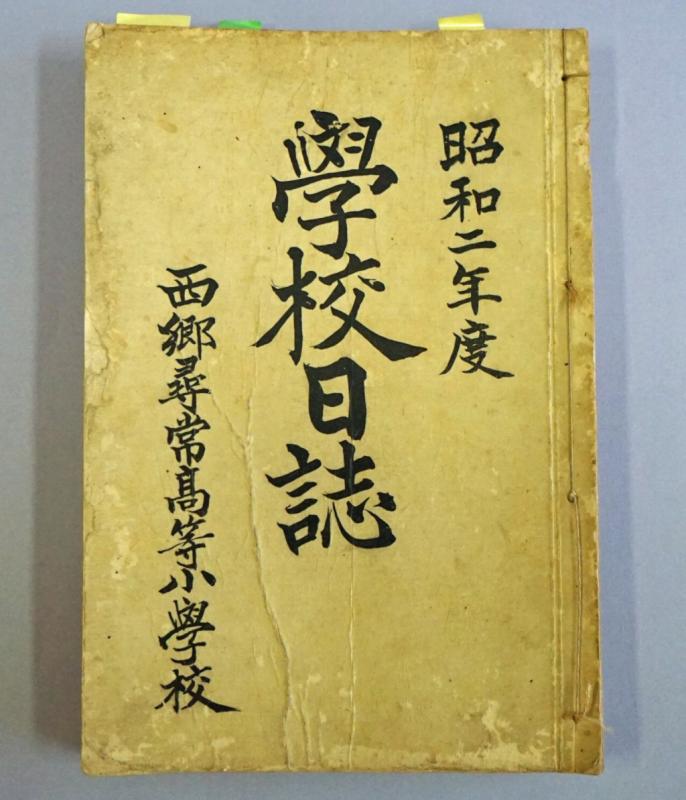 昭和二年度
學校日誌
西郷尋常髙等小學校